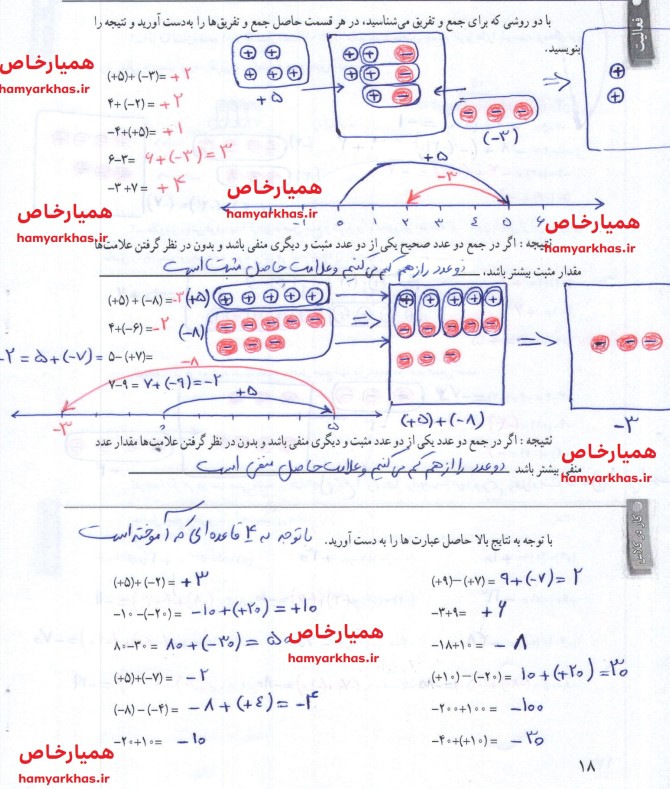 فعالیت
با دو روشی که برای جمع و تفریق می‌شناسید، در هر قسمت حاصل جمع و تفریق‌ها را به‌دست آورید و نتیجه را
بنویسید.
همیارخاص
hamyarkhas.ir
(+۵)+(−۳)= +۲
۴+(−۲)= +۲
−۴+(+۵)= +۱
۶−۳= ۶+(−۳)= ۳
−۳+۷= +۴
+۵
(−۳)
همیارخاص
hamyarkhas.ir
همیارخاص
hamyarkhas.ir
همیارخاص
hamyarkhas.ir
+۵
−۳
−۱ ۰ ۱ ۲ ۳ ۴ ۵ ۶
نتیجه : اگر در جمع دو عدد صحیح یکی از دو عدد مثبت و دیگری منفی باشد و بدون در نظر گرفتن علامت‌ها
مقدار مثبت بیشتر باشد، دو عدد را از هم کم می‌کنیم و علامت حاصل مثبت است
(+۵)+(−۸)=−۳
(+۵)
۴+(−۶)=−۲
(−۸)
۵−(+۷)= ۵+(−۷)=−۲
۷−۹= ۷+(−۹)=−۲
−۸
+۵
−۳ ۰ ۵
(+۵)+(−۸)
−۳
نتیجه : اگر در جمع دو عدد یکی از دو عدد مثبت و دیگری منفی باشد و بدون در نظر گرفتن علامت‌ها مقدار عدد
منفی بیشتر باشد دو عدد را از هم کم می‌کنیم و علامت حاصل منفی است
همیارخاص
hamyarkhas.ir
کار در کلاس
با توجه به نتایج بالا حاصل عبارت ها را به دست آورید. با توجه به ۴ قاعده‌ای که آموخته است
(+۵)+(−۲)= +۳
(+۹)−(+۷)= ۹+(−۷)= ۲
−۱۰−(−۲۰)= −۱۰+(+۲۰)= +۱۰
−۳+۹= +۶
۸۰−۳۰= ۸۰+(−۳۰)= ۵۰
−۱۸+۱۰= −۸
همیارخاص
hamyarkhas.ir
(+۵)+(−۷)= −۲
(+۱۰)−(−۲۰)= ۱۰+(+۲۰)=۳۰
(−۸)−(−۴)= −۸+(+٤)= −۴
−۲۰۰+۱۰۰= −۱۰۰
−۲۰+۱۰= −۱۰
−۴۰+(+۱۰)= −۳۰
همیارخاص
hamyarkhas.ir
۱۸